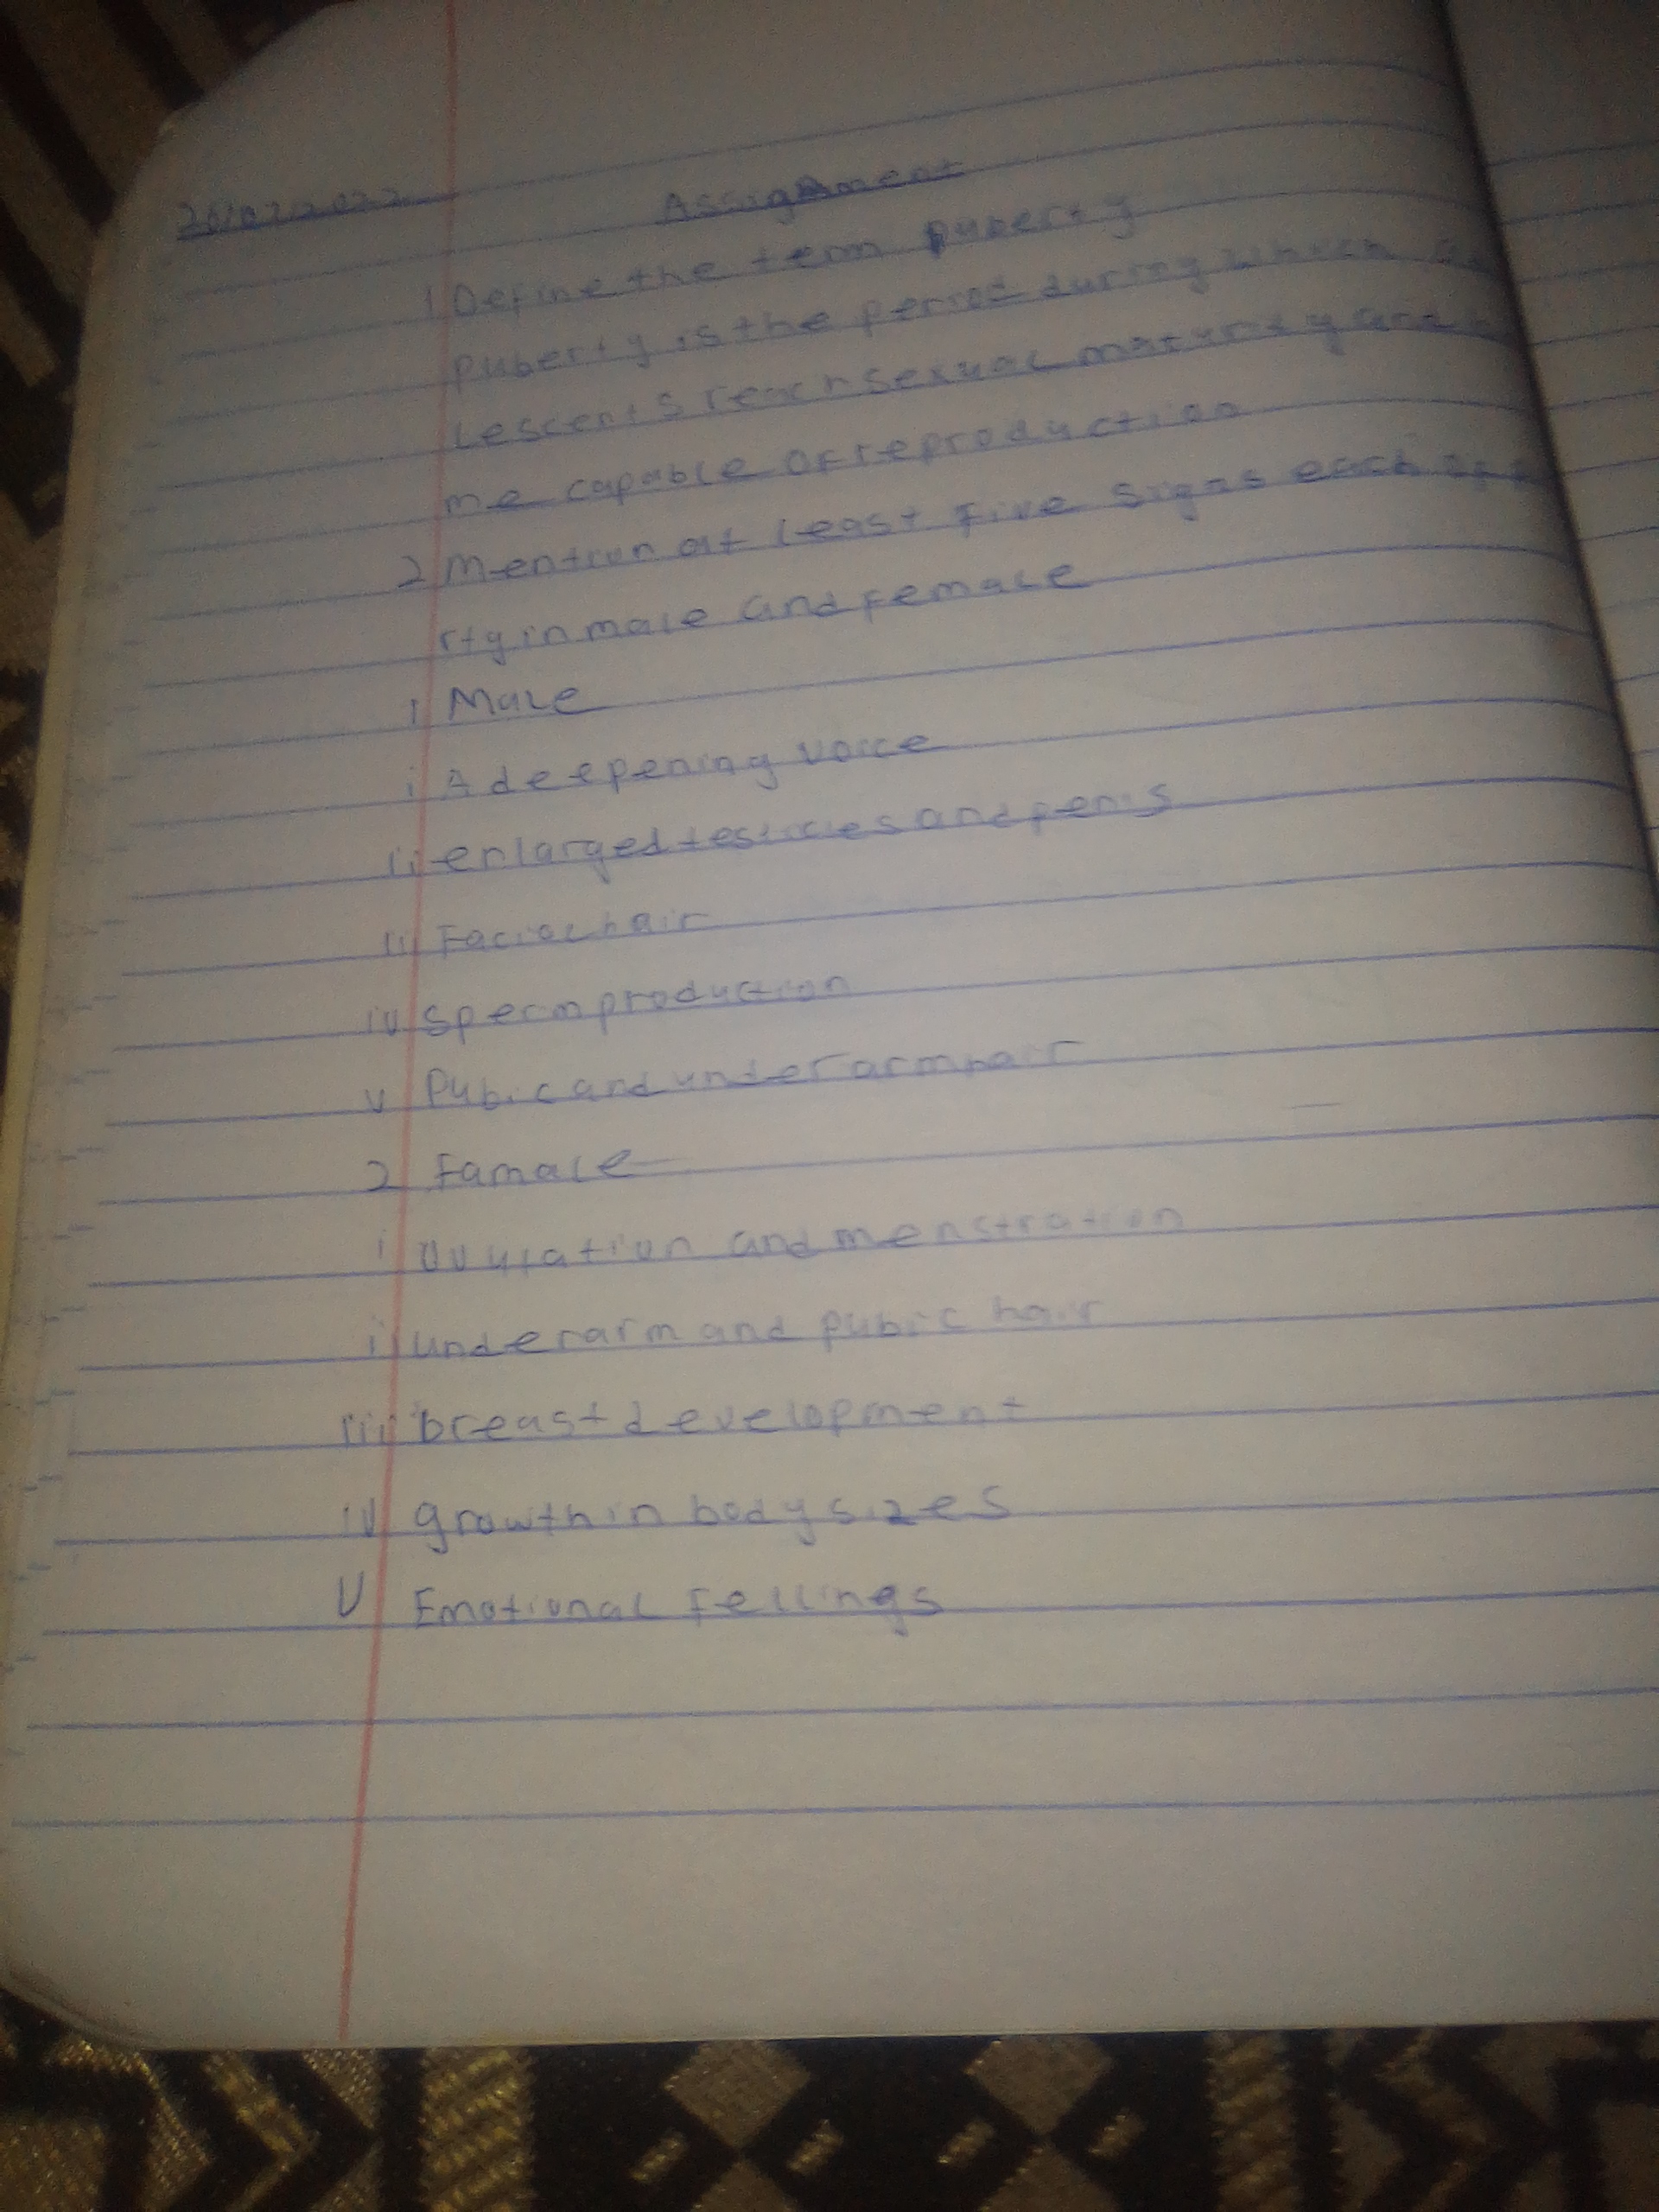 26/07/2022 Assignment
1 Define the term puberty
puberty is the period during which
lescents reach sexual maturity and
me capable of reproduction
2 Mention at least Five Signs each of
rty in male and female
i Male
i A deepening voice
ii enlarged testicles and penis
iii Facial hair
iv Sperm production
v Pubic and underarm hair
2 Famale
i Ovulation and menstration
ii underarm and pubic hair
iii breast development
iv growth in body sizes
V Emotional Fellings